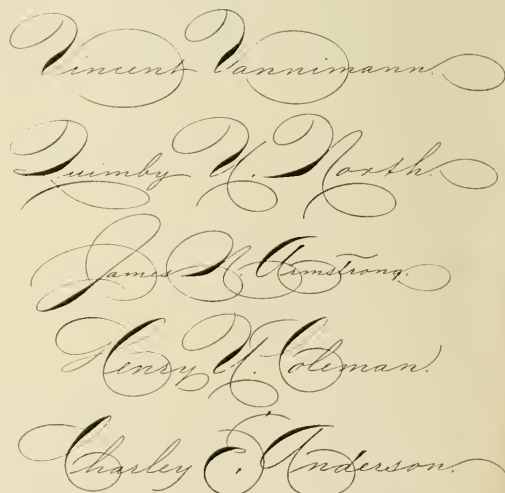 Vincent Vannimann.
Quimby U. North.
James N. Armstrong.
Henry U. Coleman.
Charley E. Anderson.